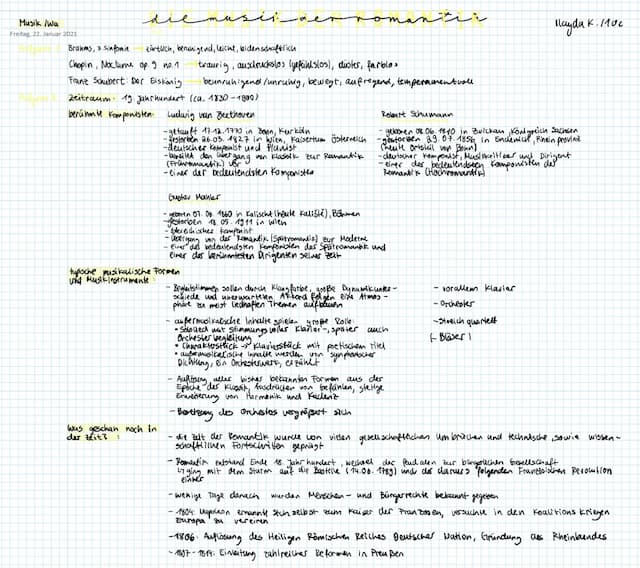 Musik /wa
die musik der romantik
Nayda K. /10c
Freitag, 22. Januar 2021
Aufgabe 1
Brahms, 3 sinfonie → zärtlich, beruhigend, leicht, leidenschaftlich
Chopin, Nocturne op. 9 no. 1 → traurig, ausdruckslos (gefühllos), düster, farblos
Franz Schubert: Der Erlkönig → beunruhigend/unruhig, bewegt, aufregend, temperamentvoll
Aufgabe 2
Zeitraum: 19. Jahrhundert (ca. 1830-1900)
berühmte Komponisten:
Ludwig van Beethoven
- getauft 17.12.1770 in Bonn, Kurköln
- gestorben 26.03.1827 in Wien, Kaisertum Österreich
- deutscher Komponist und Pianist
- bereitet den Übergang von Klassik zur Romantik
(Frühromantik) vor
- einer der bedeutendsten Komponisten
Robert Schumann
- geboren 08.06.1810 in Zwickau, Königreich Sachsen
- gestorben 29.07.1856 in Endenich, Rheinprovinz
(heute Ortsteil von Bonn)
- deutscher Komponist, Musikkritiker und Dirigent
- einer der bedeutendsten Komponisten der
Romantik (Hochromantik)
Gustav Mahler
- geboren 07.07.1860 in Kalischt (heute Kaliště), Böhmen
- gestorben 18.05.1911 in Wien
- österreichischer Komponist
- Übergang von der Romantik (Spätromantik) zur Moderne
- einer der bedeutendsten Komponisten der Spätromantik und
einer der berühmtesten Dirigenten seiner Zeit
typische musikalische Formen
und Musikinstrumente:
- Begleitstimmen sollen durch Klangfarbe, große Dynamikunter-
schiede und unerwarteten Akkordfolgen eine Atmos-
phäre zu meist lebhaften Themen aufbauen
- außermusikalische Inhalte spielen große Rolle:
• Sololied mit stimmungsvoller Klavier-, später auch
Orchesterbegleitung
• Charakterstück → Klavierstück mit poetischem Titel
• außermusikalische Inhalte werden von symphonischer
Dichtung, ein Orchesterwerk, erzählt
- Auflösung aller bisher bekannten Formen aus der
Epoche der Klassik, Ausdrücken von Gefühlen, stetige
Erweiterung von Harmonik und Kadenz
- Besetzung des Orchesters vergrößert sich
- vorallem Klavier
- Orchester
- Streichquartett
(- Bläser)
Was geschah noch in
der Zeit?:
- die Zeit der Romantik wurde von vielen gesellschaftlichen Umbrüchen und technische, sowie wissen-
schaftlichen Fortschritten geprägt
- Romantik entstand Ende 18. Jahrhundert, Wechsel der feudalen zur bürgerlichen Gesellschaft
↳ ging mit dem Sturm auf die Bastille (14.07.1789) und der daraus folgenden Französischen Revolution
einher
- wenige Tage danach wurden Menschen- und Bürgerrechte bekannt gegeben
- 1804: Napoleon ernannte sich selbst zum Kaiser der Franzosen, versuchte in den Koalitionskriegen
Europa zu vereinen
- 1806: Auflösung des Heiligen Römischen Reiches Deutscher Nation, Gründung des Rheinbundes
- 1807-1814: Einleitung zahlreicher Reformen in Preußen